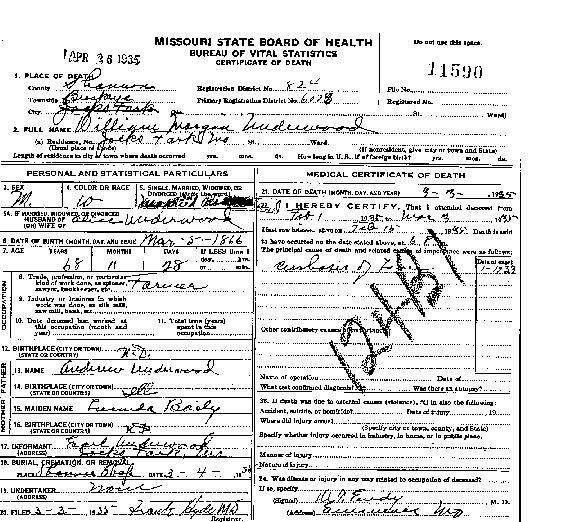 APR 26 1935
MISSOURI STATE BOARD OF HEALTH
BUREAU OF VITAL STATISTICS
CERTIFICATE OF DEATH
Do not use this space.
11590
1. PLACE OF DEATH
County Shannon
Registration District No. 824
File No.
Township
Primary Registration District No.
Registered No.
City Jacks Fork No. St. Ward)
2. FULL NAME William Morgan Underwood
(a) Residence, No. Jacks Fork Mo St. Ward.
(Usual place of abode) (If nonresident, give city or town and State)
Length of residence in city or town where death occurred yrs. mos. ds. How long in U. S., if of foreign birth? yrs. mos. ds.
PERSONAL AND STATISTICAL PARTICULARS
3. SEX M.
4. COLOR OR RACE W
5. SINGLE, MARRIED, WIDOWED, OR DIVORCED (write the word)
5A. IF MARRIED, WIDOWED, OR DIVORCED
HUSBAND OF
(OR) WIFE OF Underwood
6. DATE OF BIRTH (MONTH, DAY, AND YEAR) Mar-5-1866
7. AGE YEARS 68 MONTHS DAYS 28 If LESS than 1 day, hrs. or min.
OCCUPATION
8. Trade, profession, or particular kind of work done, as spinner, sawyer, bookkeeper, etc. Farmer
9. Industry or business in which work was done, as silk mill, saw mill, bank, etc.
10. Date deceased last worked at this occupation (month and year)
11. Total time (years) spent in this occupation
12. BIRTHPLACE (CITY OR TOWN)
(STATE OR COUNTRY)
FATHER
13. NAME Andrew Underwood
14. BIRTHPLACE (CITY OR TOWN)
(STATE OR COUNTRY) Ill
MOTHER
15. MAIDEN NAME
16. BIRTHPLACE (CITY OR TOWN)
(STATE OR COUNTRY)
17. INFORMANT Earl Underwood
(ADDRESS) Jacks Fork, Mo
18. BURIAL, CREMATION, OR REMOVAL
PLACE DATE 3-4-
19. UNDERTAKER None
(ADDRESS)
20. FILED 3-3- 1935 Frank Hyde MD
Registrar.
MEDICAL CERTIFICATE OF DEATH
21. DATE OF DEATH (MONTH, DAY, AND YEAR) 3-3- 1935
22. I HEREBY CERTIFY, That I attended deceased from
Feb 1 1935 Mar 3 1935
I last saw h alive on Feb 15 1935 Death is said
to have occurred on the date stated above, at
The principal cause of death and related causes of importance were as follows:
Date of onset
12431
Other contributory causes of importance:
Name of operation Date of
What test confirmed diagnosis? Was there an autopsy?
23. If death was due to external causes (violence), fill in also the following:
Accident, suicide, or homicide? Date of injury 19
Where did injury occur?
(Specify city or town, county, and State)
Specify whether injury occurred in industry, in home, or in public place.
Manner of injury
Nature of injury
24. Was disease or injury in any way related to occupation of deceased?
If so, specify
(Signed) M. D.
(Address) Mo